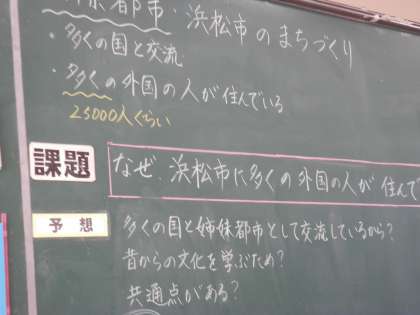 都市・浜松市のまちづくり
・多くの国と交流
・多くの外国の人が住んでいる
25000人くらい
課題
なぜ、浜松市に多くの外国の人が住んで
予想
多くの国と姉妹都市として交流しているから?
昔からの文化を学ぶため?
共通点がある?